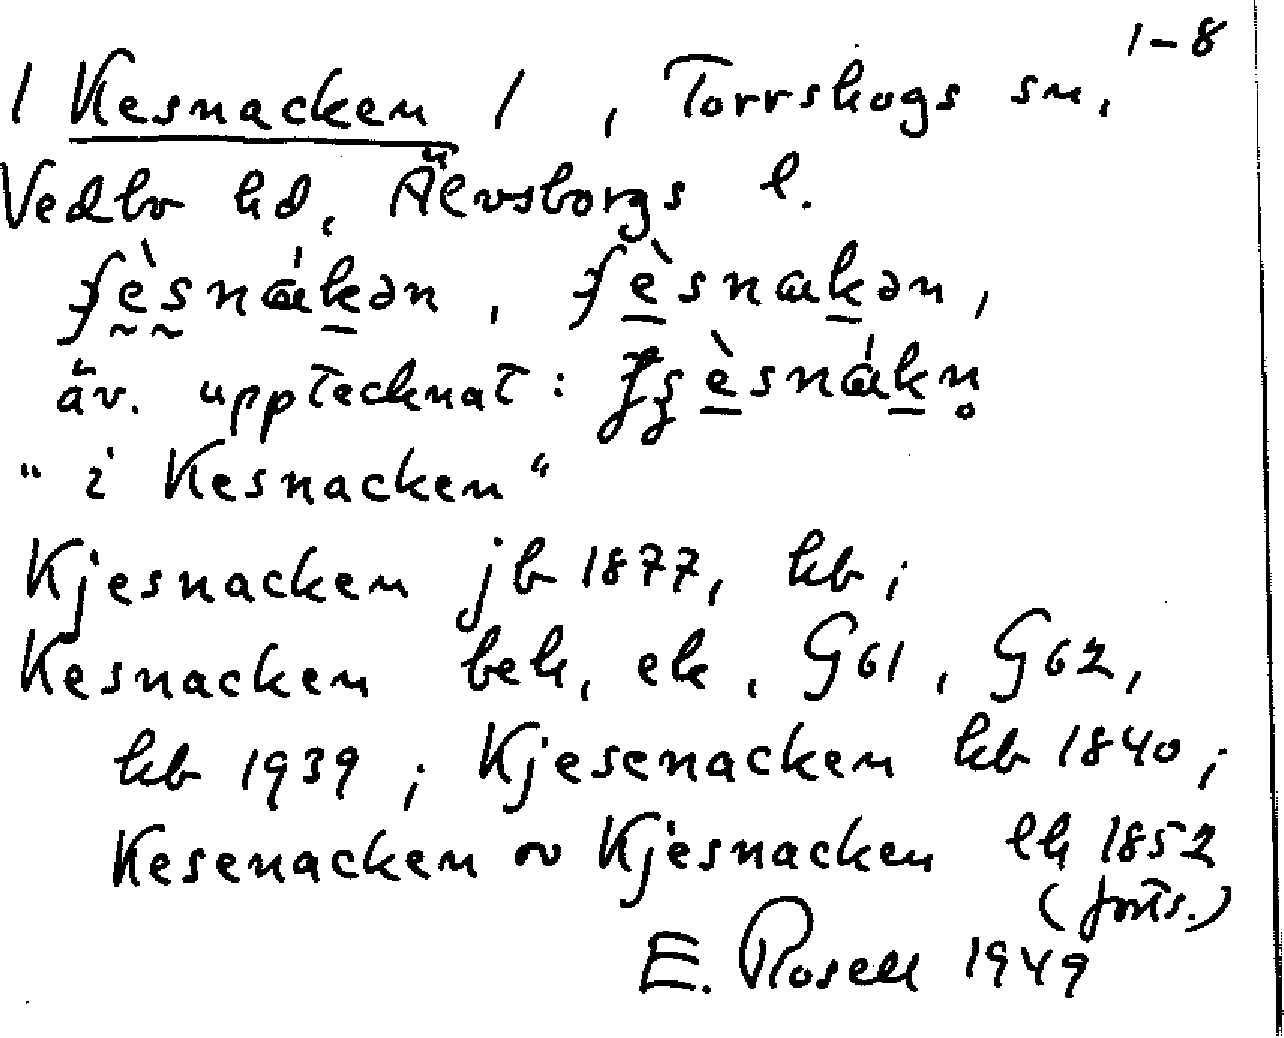 1-8
/ Kesnacken /, Torrskogs sn,
Vedbo hd, Älvsborgs l.
äv. upptecknat:
"i Kesnacken"
Kjesnacken jb 1877, kb;
Kesnacken bek, ek, G61, G62,
kb 1939; Kjesenacken kb 1840;
Kesenacken ou Kjesnacken lh 1852
(forts.)
E. Rosell 1949